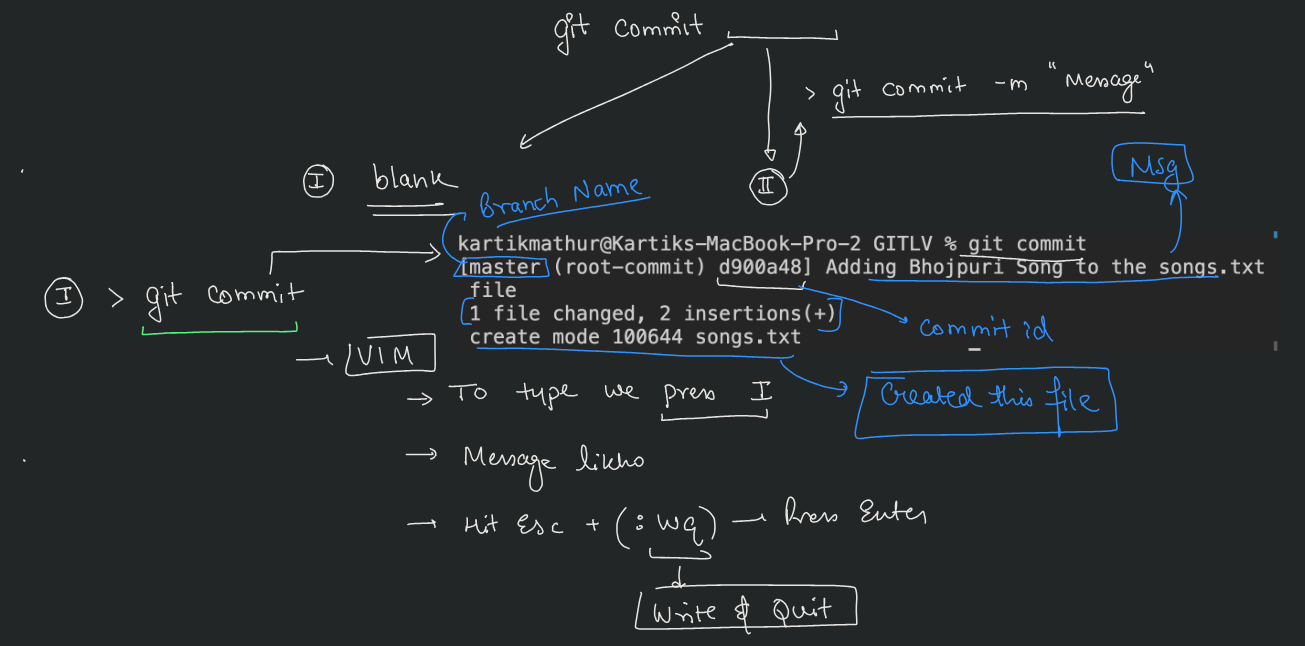 git commit
> git commit -m "Message"
I blank
II
Msg
Branch Name
kartikmathur@Kartiks-MacBook-Pro-2 GITLV % git commit
[master (root-commit) d900a48] Adding Bhojpuri Song to the songs.txt
file
1 file changed, 2 insertions(+)
create mode 100644 songs.txt
I > git commit
commit id
→ VIM
→ To type we press I
Created this file
→ Message likho
→ Hit Esc + (:wq) → Press Enter
Write & Quit